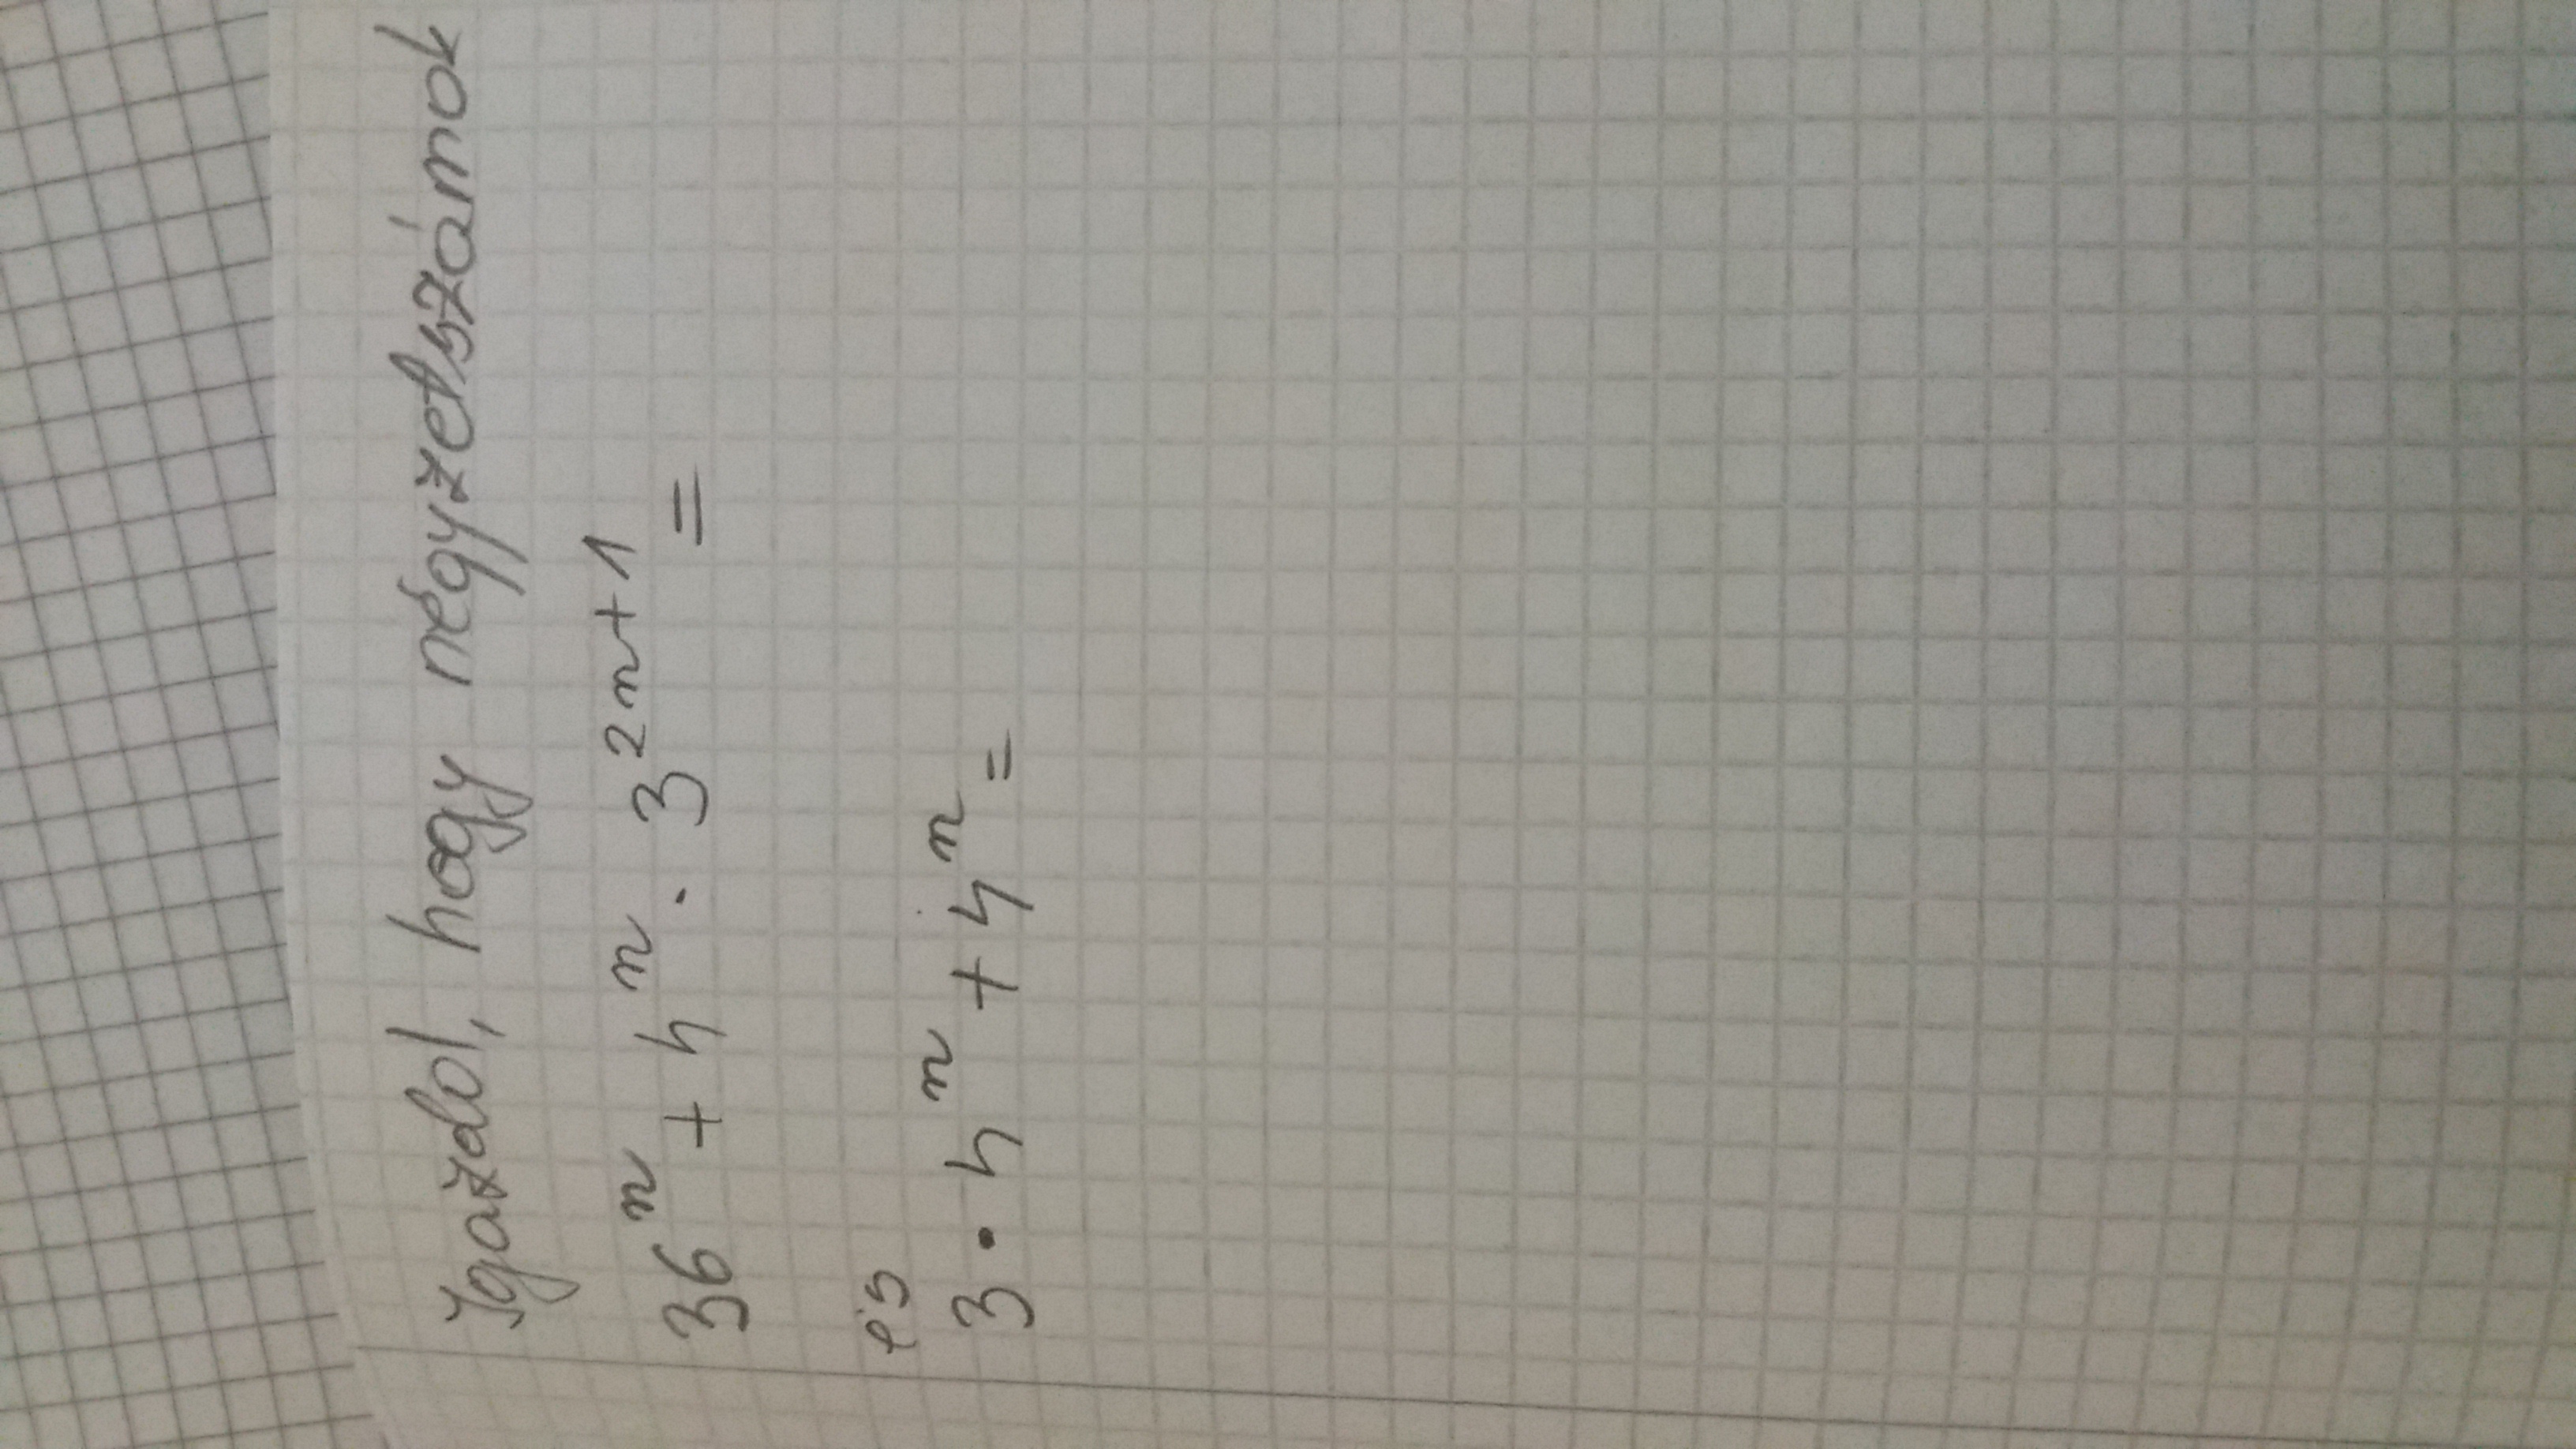 Igazdol, hogy négyzetszámok
36ⁿ + 4ⁿ · 3²ⁿ⁺¹ =
és
3 · 4ⁿ + 4ⁿ =